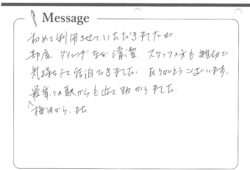 Message
初めて利用させていただきましたが
部屋 ダイニング等が清潔 スタッフの方も親切で
気持ちよく宿泊できました。ありがとうございます。
最寄りの駅からも近く助かりました。